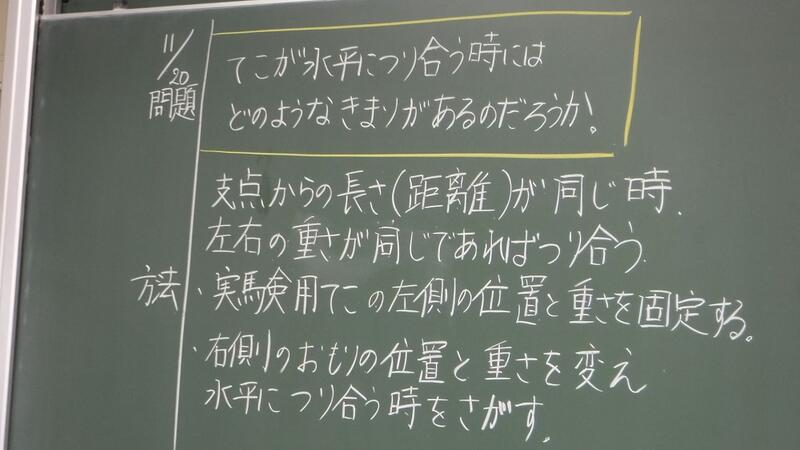 11/20
問題
てこが水平につり合う時には
どのようなきまりがあるのだろうか!
支点からの長さ(距離)が同じ時、
左右の重さが同じであればつり合う。
方法・実験用てこの左側の位置と重さを固定する。
・右側のおもりの位置と重さを変え
水平につり合う時をさがす。